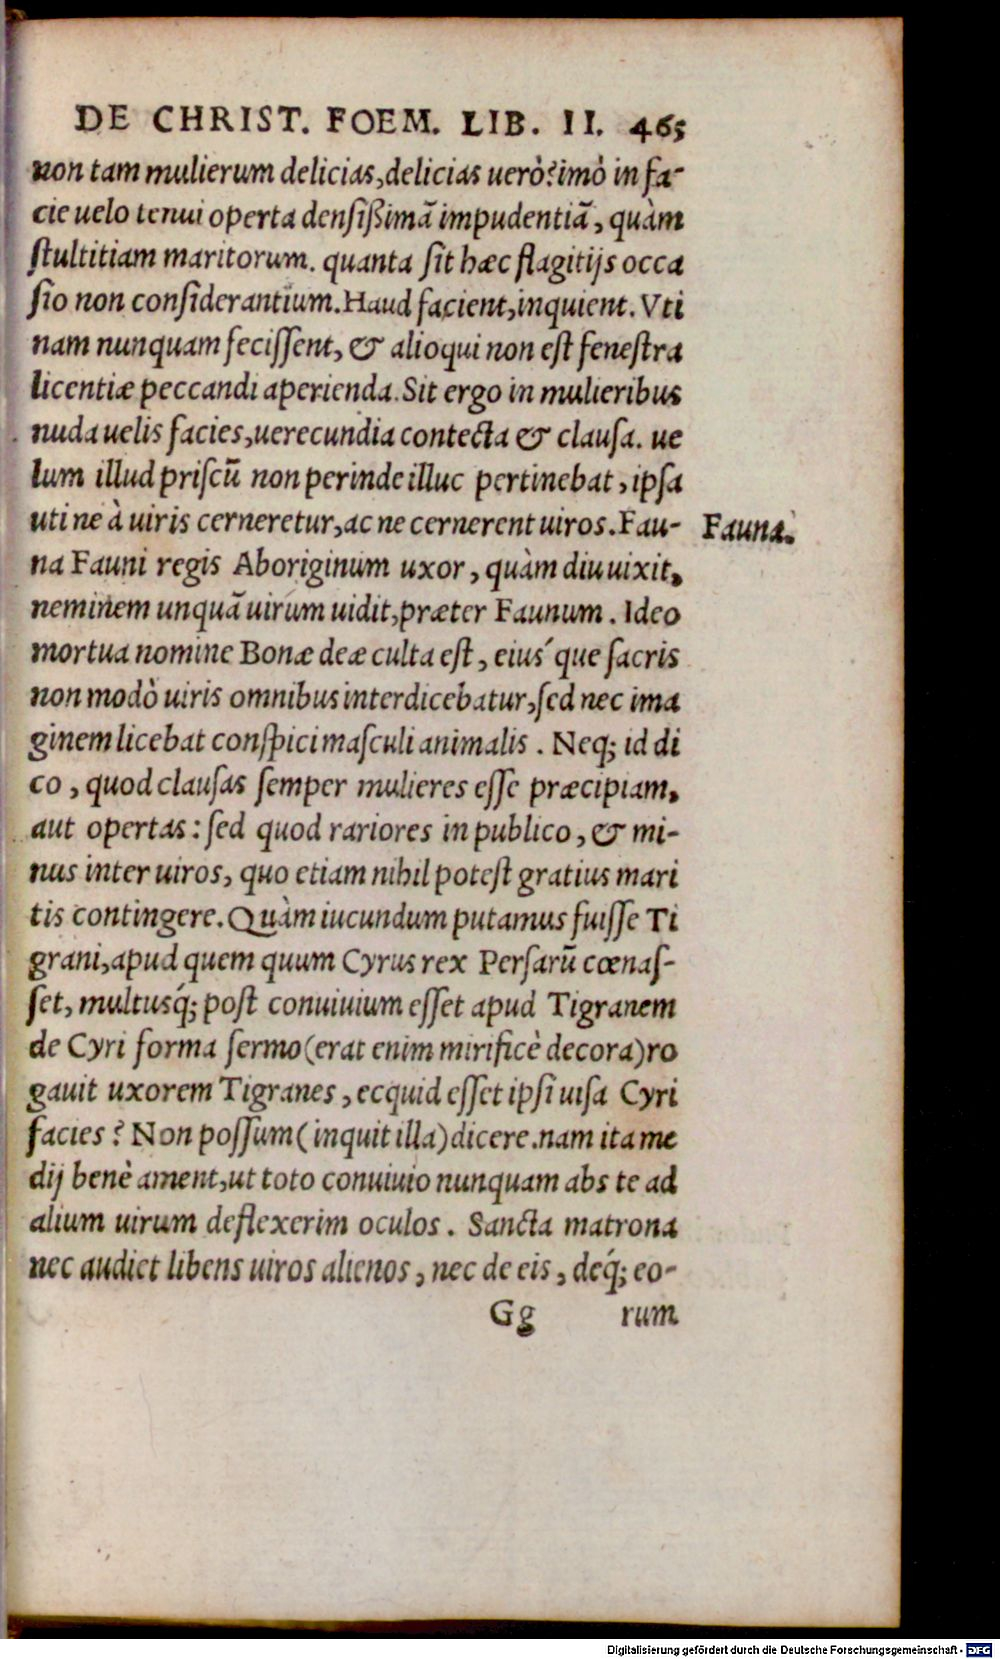 DE CHRIST. FOEM. LIB. II. 465
non tam mulierum delicias, delicias uerò? imò in fa-
cie uelo tenui operta densißimā impudentiā, quàm
stultitiam maritorum. quanta sit hæc flagitijs occa
sio non considerantium. Haud facient, inquient. Vti
nam nunquam fecissent, & alioqui non est fenestra
licentiæ peccandi aperienda. Sit ergo in mulieribus
nuda uelis facies, uerecundia contecta & clausa. ue
lum illud priscū non perinde illuc pertinebat, ipsa
uti ne à uiris cerneretur, ac ne cernerent uiros. Fau-
Fauna.
na Fauni regis Aboriginum uxor, quàm diu uixit,
neminem unquā uirum uidit, præter Faunum. Ideo
mortua nomine Bonæ deæ culta est, eius´que sacris
non modò uiris omnibus interdicebatur, sed nec ima
ginem licebat conspici masculi animalis. Neq; id di
co, quod clausas semper mulieres esse præcipiam,
aut opertas: sed quod rariores in publico, & mi-
nus inter uiros, quo etiam nihil potest gratius mari
tis contingere. Quàm iucundum putamus fuisse Ti
grani, apud quem quum Cyrus rex Persarū cœnas-
set, multusq́; post conuiuium esset apud Tigranem
de Cyri forma sermo (erat enim mirificè decora) ro
gauit uxorem Tigranes, ecquid esset ipsi uisa Cyri
facies? Non possum (inquit illa) dicere. nam ita me
dij benè ament, ut toto conuiuio nunquam abs te ad
alium uirum deflexerim oculos. Sancta matrona
nec audiet libens uiros alienos, nec de eis, deq́; eo-
Gg rum
Digitalisierung gefördert durch die Deutsche Forschungsgemeinschaft - DFG